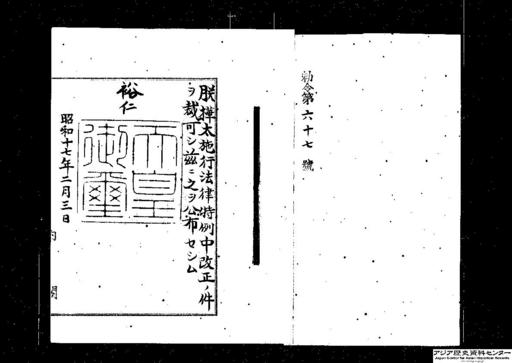 勅令第六十七號
朕樺太施行法律特例中改正ノ件
ヲ裁可シ茲ニ之ヲ公布セシム
裕仁
天皇
御璽
昭和十七年二月三日
内閣
アジア歴史資料センター
Japan Center for Asian Historical Records